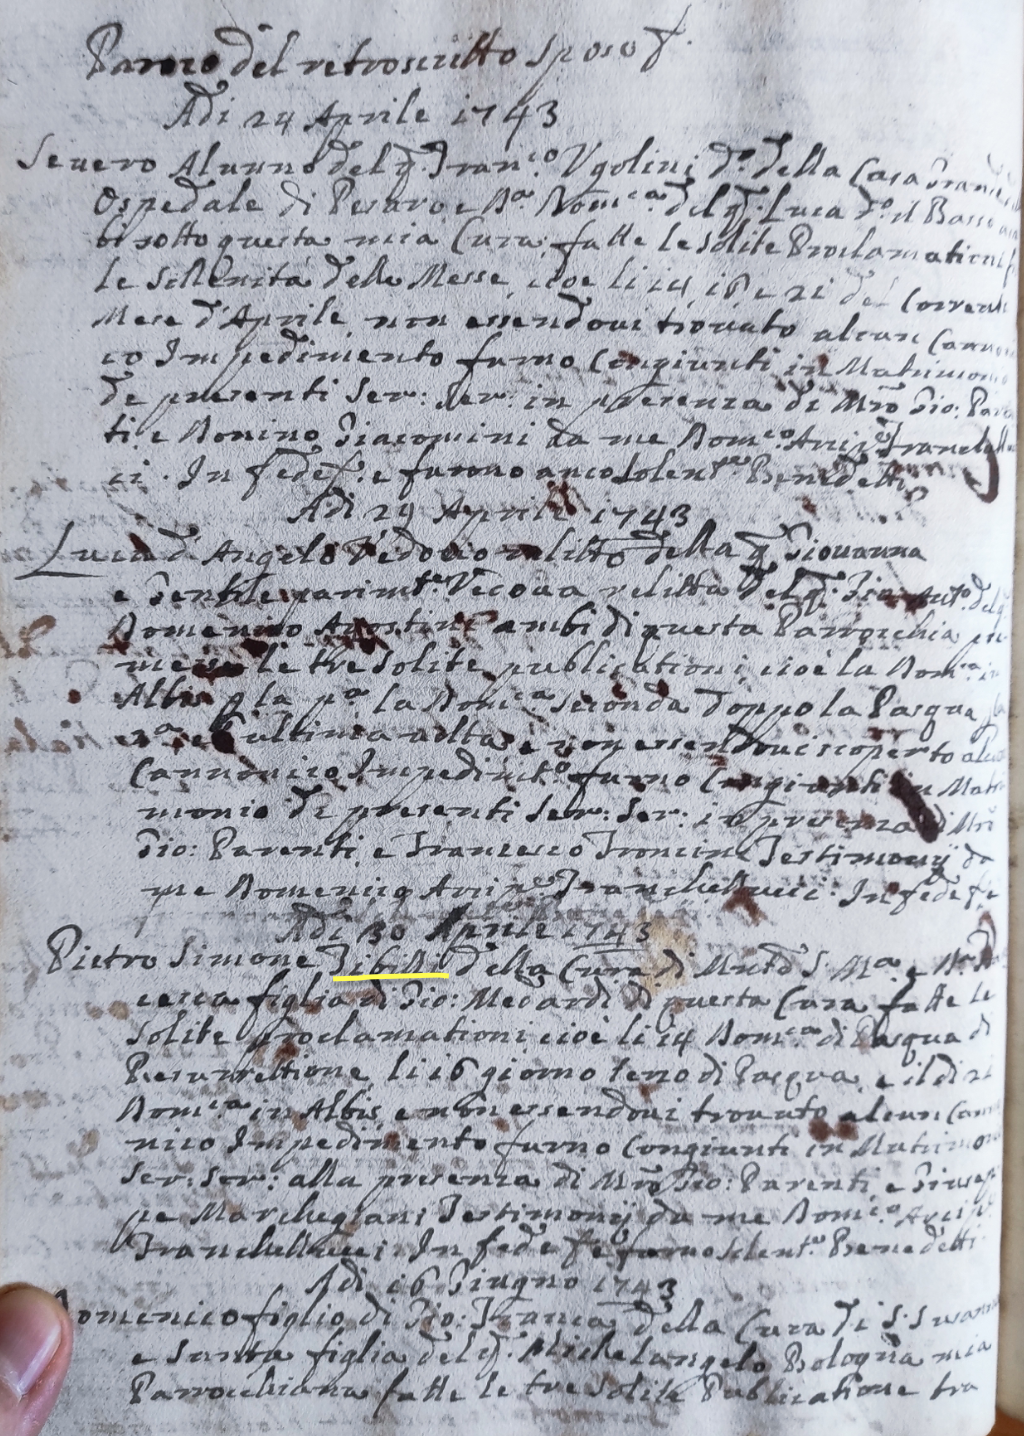 Parroco del retroscritto sposo
Adi 24 Aprile 1743
Severo Alunno del q. Fran.co Ugolini d.o della Casa Grande
Ospedale di Pesaro e D.a Dom.ca del q. Luca d.o il Basso
bi sotto questa mia Cura fatte le solite Proclamationi
le Sollenità delle Messe cioe li 14, 16, e 21 del Corrente
Mese d'Aprile non essendoui trouato alcun Canno
co Impedimento furno Congiunti in Matrimonio
de presenti Ser: Ser: in presenza di Mro Gio: Paren
ti e Bonino Giacomini da me Dom.co Arcip.e Franchellu
ci. In fede e furono anco Solen.te Benedetti
Adi 29 Aprile 1743
Luca d'Angelo Vedouo relitto della q. Giouanna
e Gentile parimt.e Vedoua relitta del q. Gio: Ant.o del q.
Domenico Agostini ambi di questa Parrocchia pre
messe le tre solite publicationi cioè la Dom.ca in
Albis la p.a la Dom.ca seconda doppo la Pasqua la
e l'ultima uolta e non essendoui scoperto alcun
Cannonico Impedimt.o furno Congionti in Matri
monio de presenti Ser: Ser: in presenza di Mro
Gio: Parenti e Francesco Troncin Testimonij da
me Domenico Arcip.e Franchellucci. In fede
Adi 30 Aprile 1743
Pietro Simone della Cura di S. M.a e
cesca figlia di Gio: Medardi di questa Cura fatte le
solite proclamationi cioè li 14 Dom.ca di Pasqua di
Resurrettione li 16 giorno terzo di Pasqua e il di 21
Dom.ca in Albis e non essendoui trouato alcun Canno
nico Impedimento furno Congiunti in Matrimon
Ser: Ser: alla presenza di Mro Gio: Parenti e Giusep
pe Marchegiani Testimonij da me Dom.co Arcip.e
Franchellucci. In fede furno Solent.e Benedetti
Adi 16 Giugno 1743
Domenico figlio di Gio: Franca della Cura di S. Susanna
e Santa figlia del q. Michelangelo Bologna mia
Parrocchiana fatte le tre solite Publicatione tra